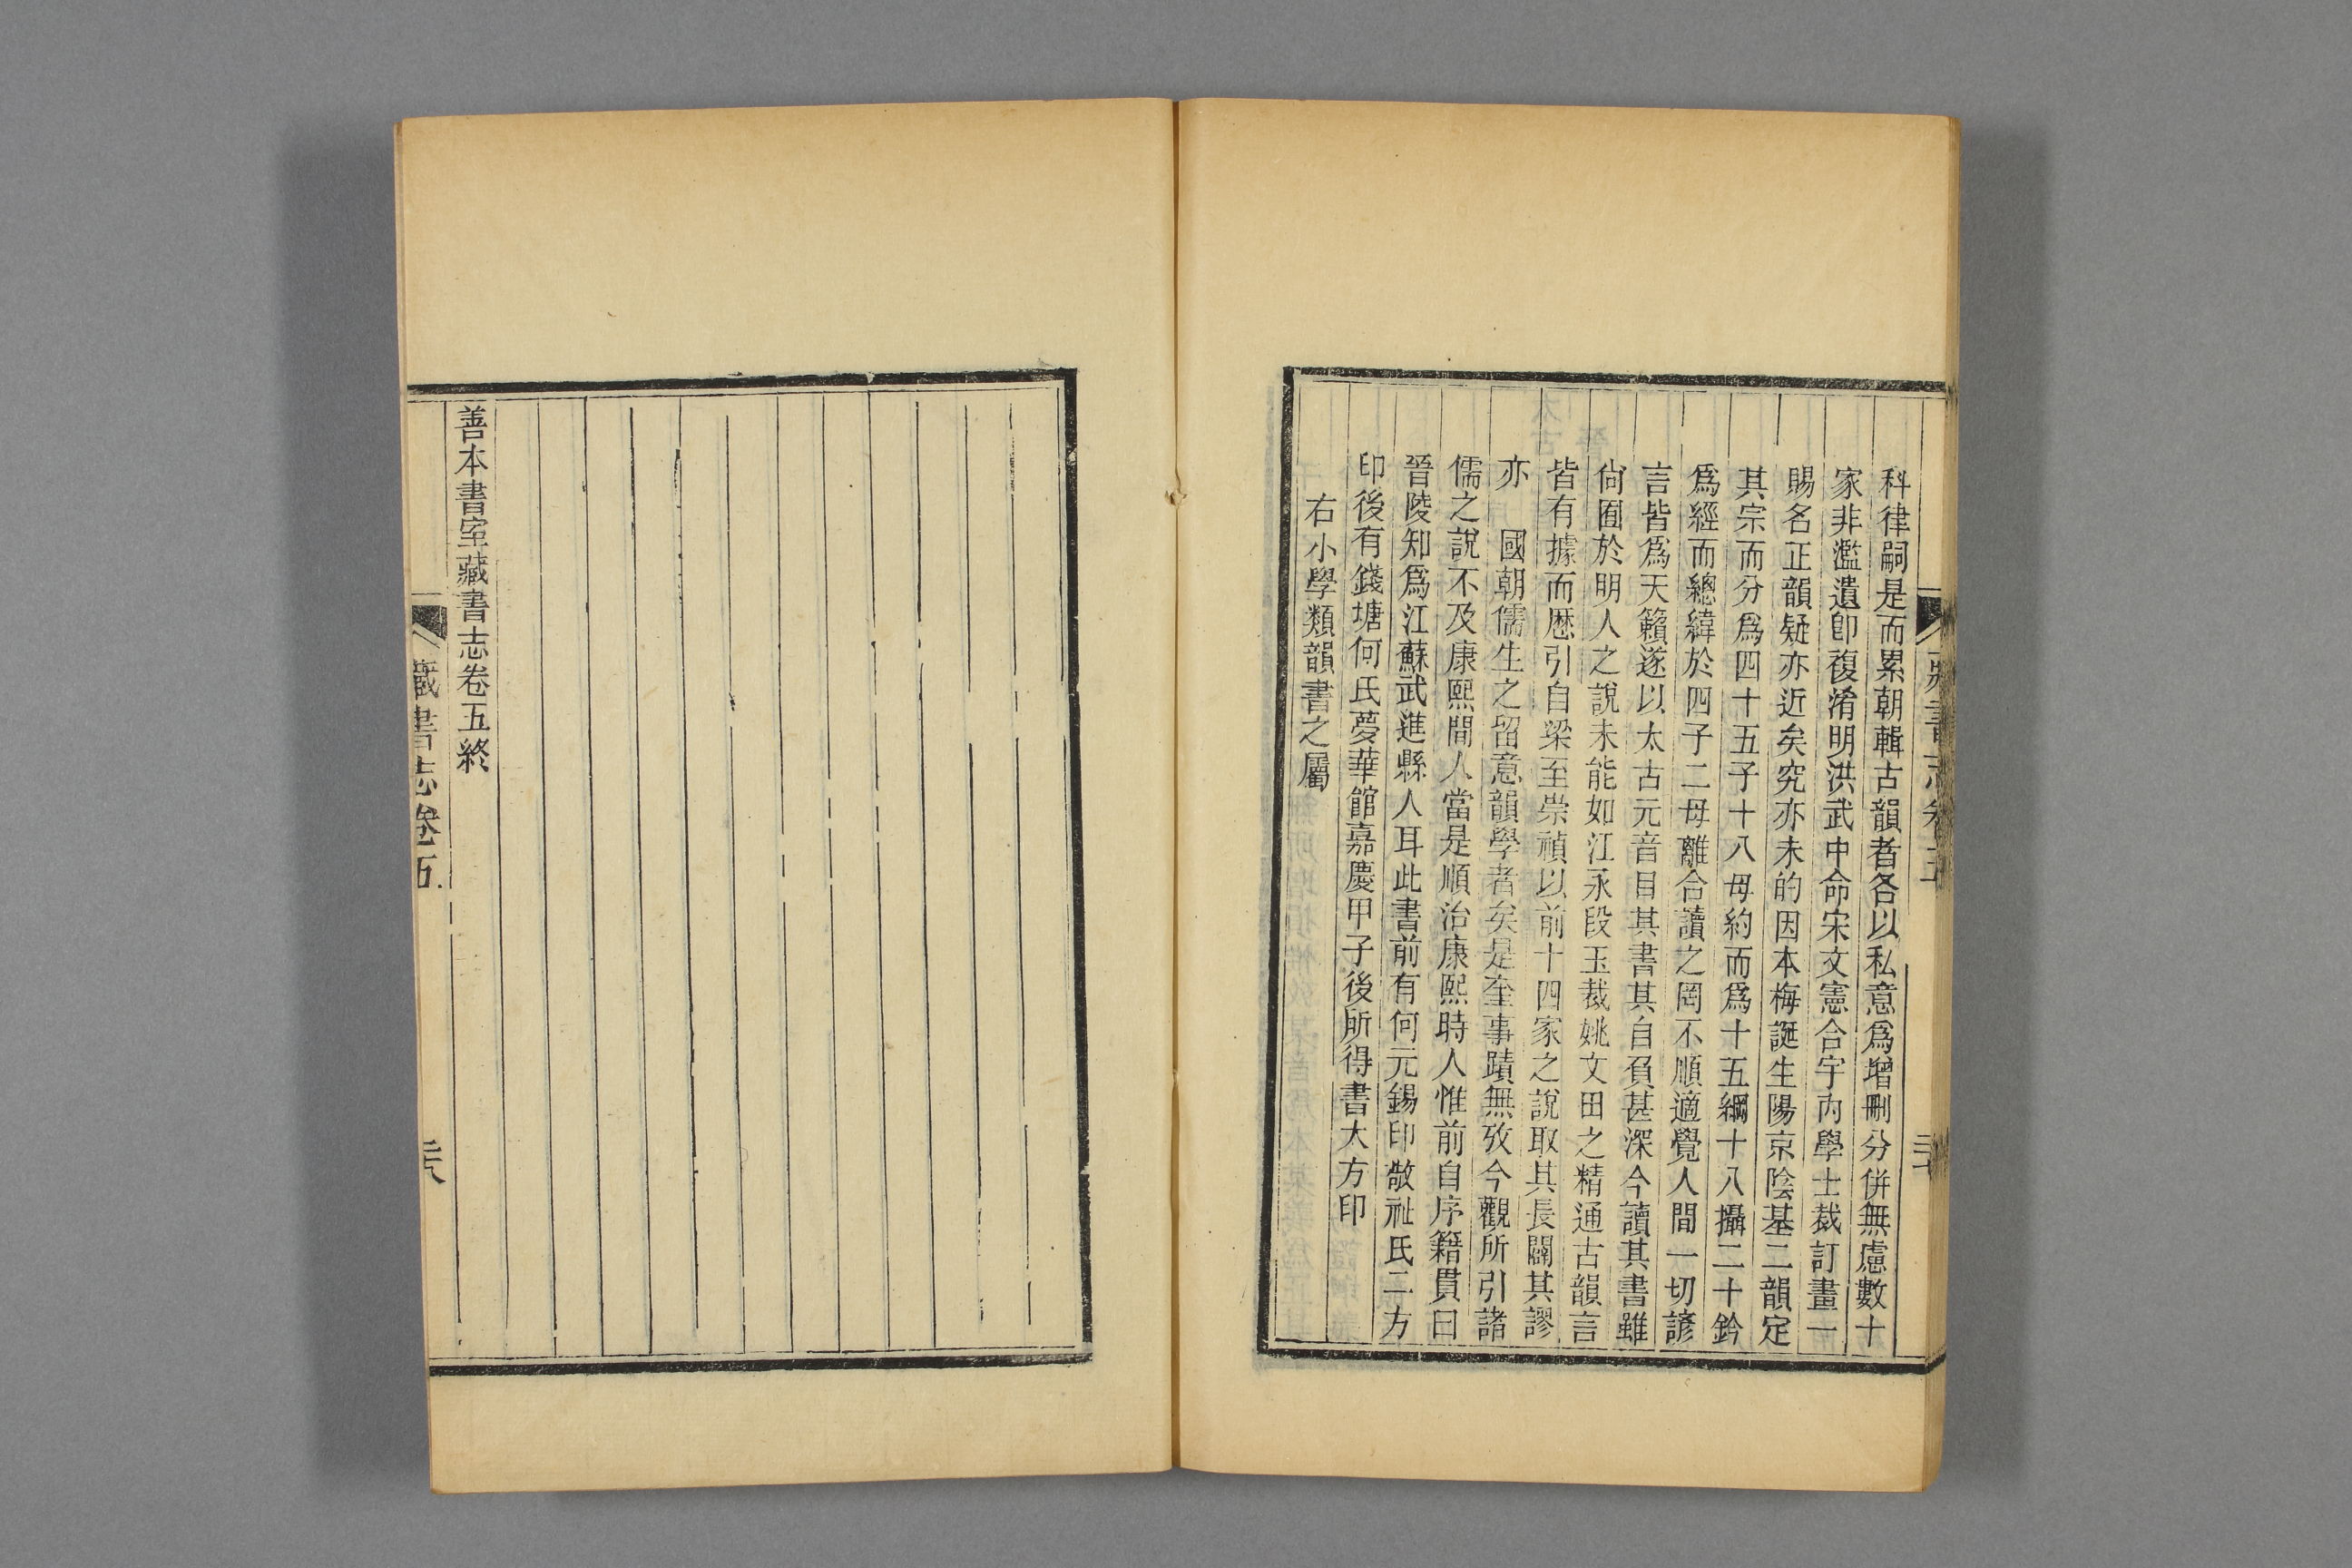 科律嗣是而累朝輯古韻者各以私意爲增刪分併無慮數十
家非濫遺卽複淆明洪武中命宋文憲合宇內學士裁訂畫一
賜名正韻疑亦近矣究亦未的因本梅誕生陽京陰基二韻定
其宗而分爲四十五子十八母約而爲十五綱十八攝二十鈐
爲經而總緯於四子二母離合讀之罔不順適覺人間一切諺
言皆爲天籟遂以太古元音目其書其自負甚深今讀其書雖
尙囿於明人之說未能如江永段玉裁姚文田之精通古韻言
皆有據而歷引自梁至崇禎以前十四家之說取其長闢其謬
亦 國朝儒生之留意韻學者矣是奎事蹟無攷今觀所引諸
儒之說不及康熙間人當是順治康熙時人惟前自序籍貫曰
晉陵知爲江蘇武進縣人耳此書前有何元錫印敬祉氏二方
印後有錢塘何氏夢華館嘉慶甲子後所得書大方印
右小學類韻書之屬
善本書室藏書志卷五終
藏書志卷五